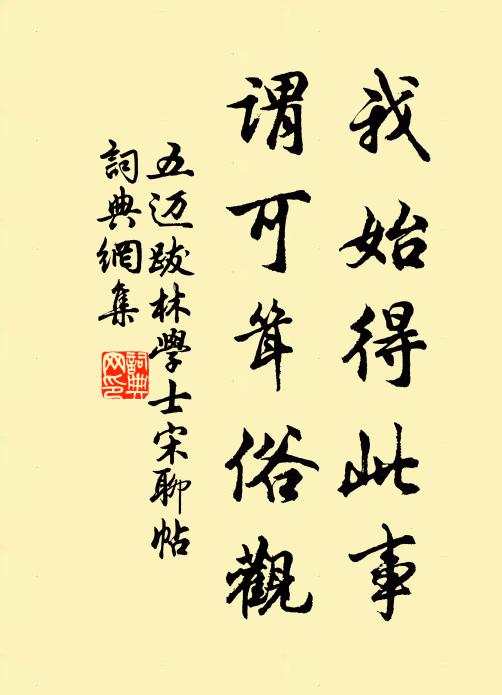 我始得此事
謂可耸俗觀
五迈跋林學士宋聊帖
詞典網集
詞典网印